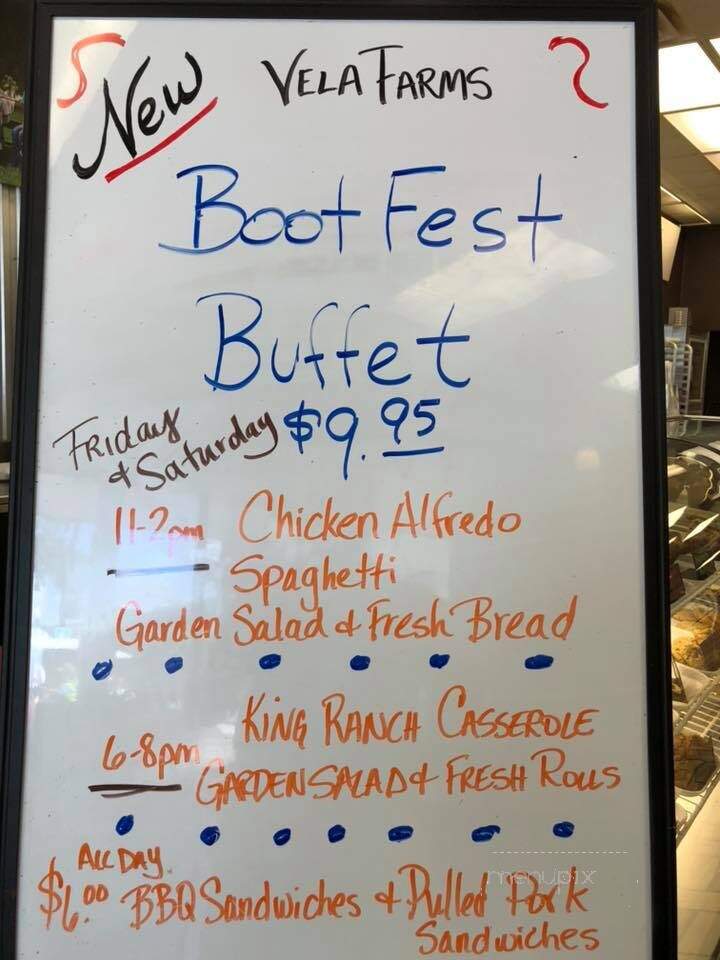 New VELA FARMS
Boot Fest
Buffet
Friday & Saturday $9.95
11-2pm Chicken Alfredo
Spaghetti
Garden Salad & Fresh Bread
KING RANCH CASSEROLE
6-8pm GARDEN SALAD & FRESH ROLLS
ALL DAY
$6.00 BBQ Sandwiches & Pulled Pork
Sandwiches
menupix